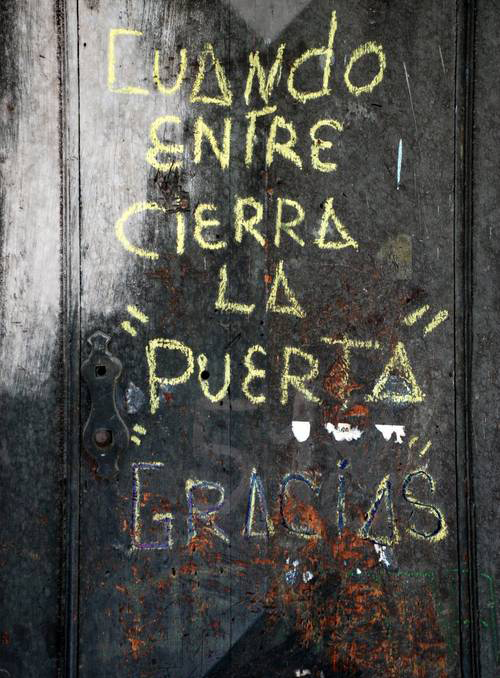 CUANDO
ENTRE
CIERRA
LA
"PUERTA"
GRACIAS